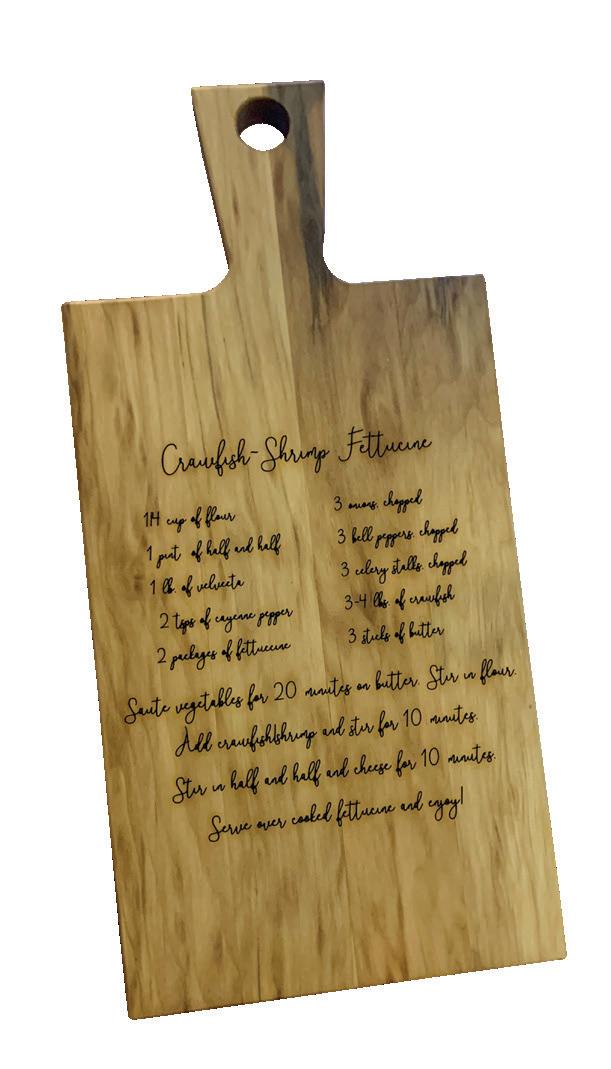 Crawfish-Shrimp Fettucine
1/4 cup of flour
1 pint of half and half
1 lb. of velveeta
2 tsps of cayenne pepper
2 packages of fettuccine
3 onions, chopped
3 bell peppers, chopped
3 celery stalks, chopped
3-4 lbs. of crawfish
3 sticks of butter
Saute vegetables for 20 minutes on butter. Stir in flour.
Add crawfish/shrimp and stir for 10 minutes.
Stir in half and half and cheese for 10 minutes.
Serve over cooked fettucine and enjoy!